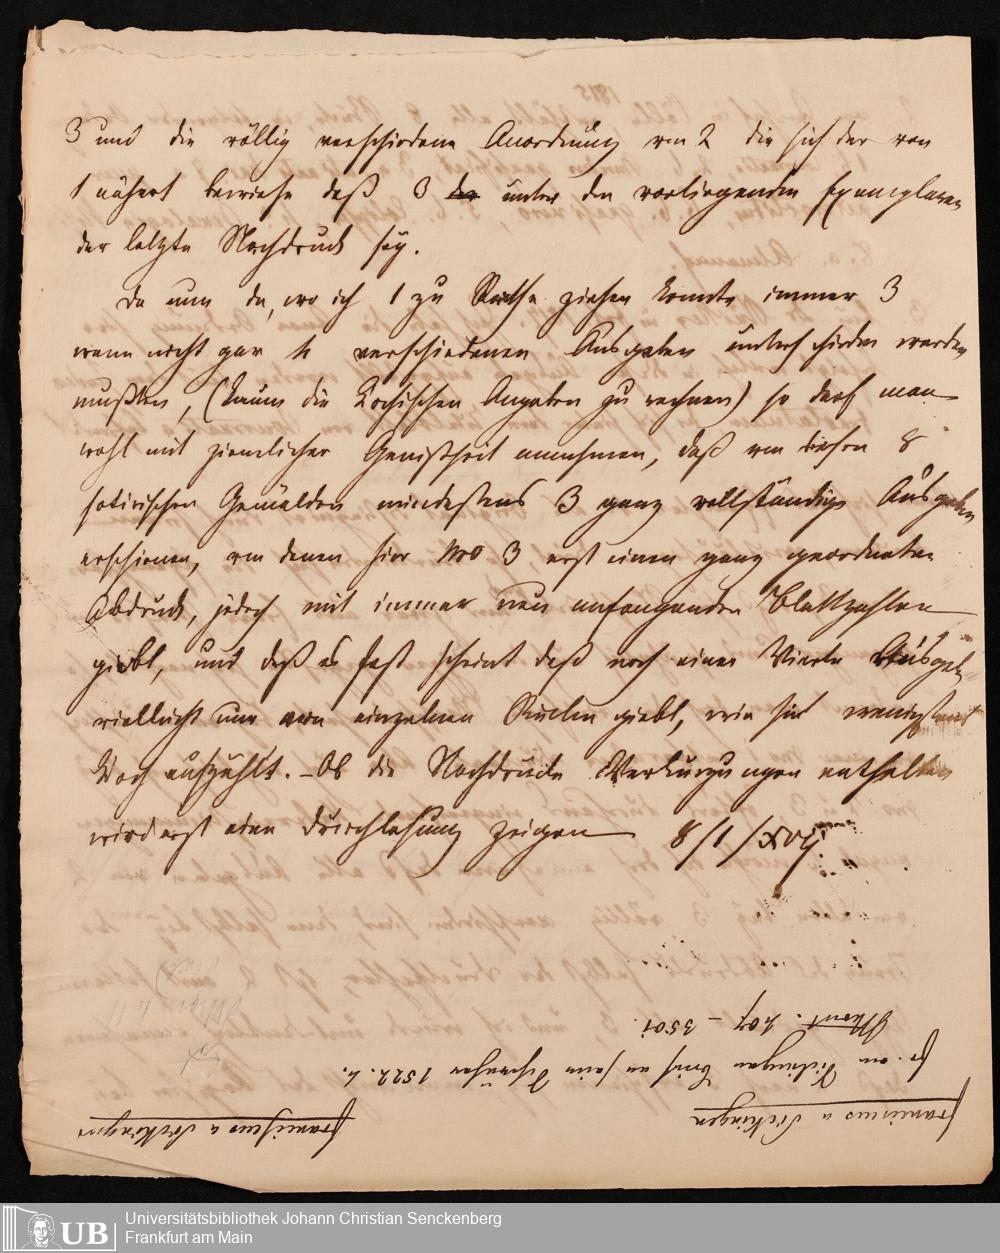 3 und die völlig verschiedene Anordnung von 2 die sich der von
1 nähert beweise daß 3 der unter den vorliegenden Exemplaren
der letzte Nachdruck sey.
Da nun da, wo ich 1 zu Rathe ziehen konnte immer 3
wenn nicht gar 4 verschiedenen Ausgaben unterschieden werden
mußten, (kaum die Kochischen Angaben zu rechnen) so darf man
wohl mit ziemlicher Gewißheit annehmen, daß von diesen 8
satirischen Gemälden mindestens 3 ganz vollständige Ausgaben
erschienen, von denen hier Nro 3 erst einen ganz geordneten
Abdruck, jedoch mit immer neu anfangenden Blattzahlen
giebt, und daß es fast scheint daß noch eine Vierte Ausgabe
vielleicht nur von einzelnen giebt, wie sie wenigstens
Koch aufzählt. – Ob die Nachdrücke Verkürzungen enthalten
wird erst eine Durchlesung zeigen 8/1/XVI
Mscrpt. 107 – 3501.
Fr. von Sickingen Brief an sein Schwäher 1522. 4.
Franciscus v Sickingen
Franciscus v Sickingen
Universitätsbibliothek Johann Christian Senckenberg
Frankfurt am Main
UB